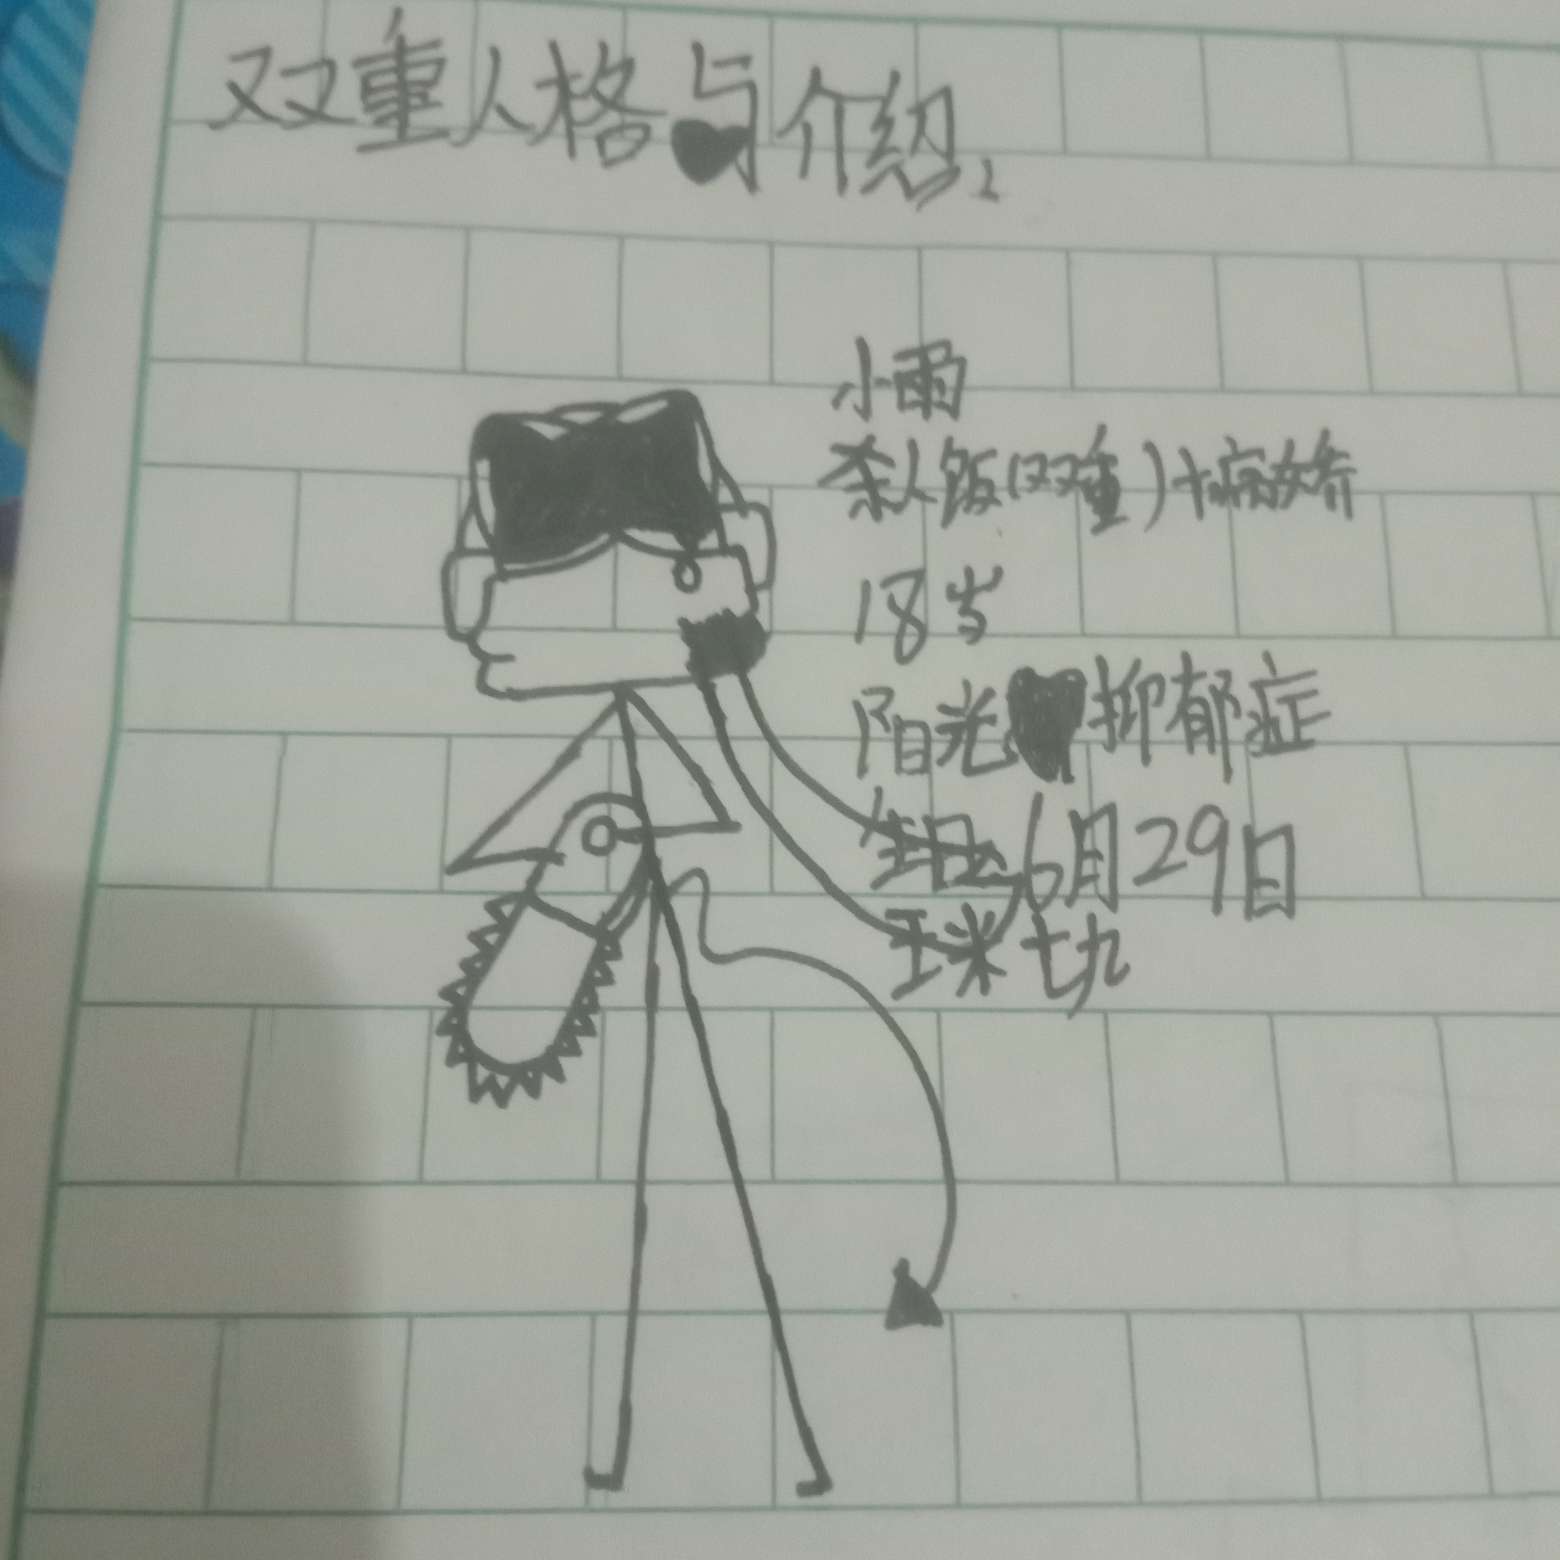 双重人格与介绍、
小雨
杀人饭(双重)+病娇
18岁
阳光抑郁症
生日:6月29日
王米七九